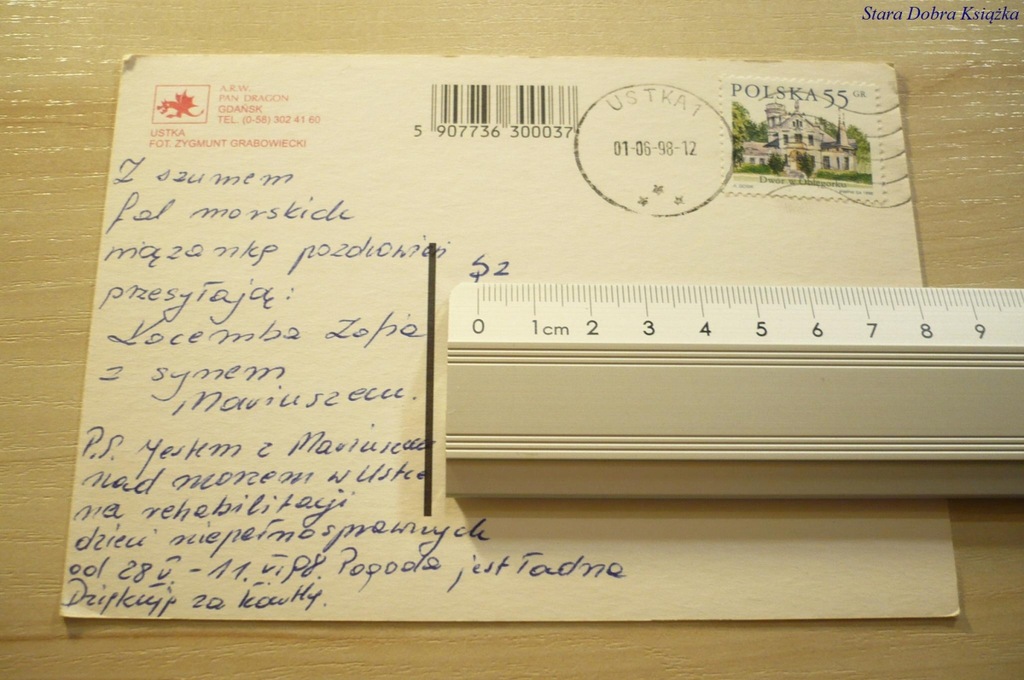 Stara Dobra Książka
A.R.W.
PAN DRAGON
GDAŃSK
TEL. (0-58) 302 41 60
USTKA
FOT. ZYGMUNT GRABOWIECKI
5 907736 300037
USTKA 1
01-06-98-12
POLSKA 55 GR
Dwór w Obłęgorku
Z szumem
fal morskich
wiązankę pozdrowień
przesyłają:
Zofia
z synem
Mariuszem.
P.S. Jestem z Mariuszem
nad morzem w Ustce
na rehabilitacji
dzieci niepełnosprawnych
od 28 V. - 11. VI 98. Pogoda jest ładna
Dziękuję za kartkę.
0 1 cm 2 3 4 5 6 7 8 9